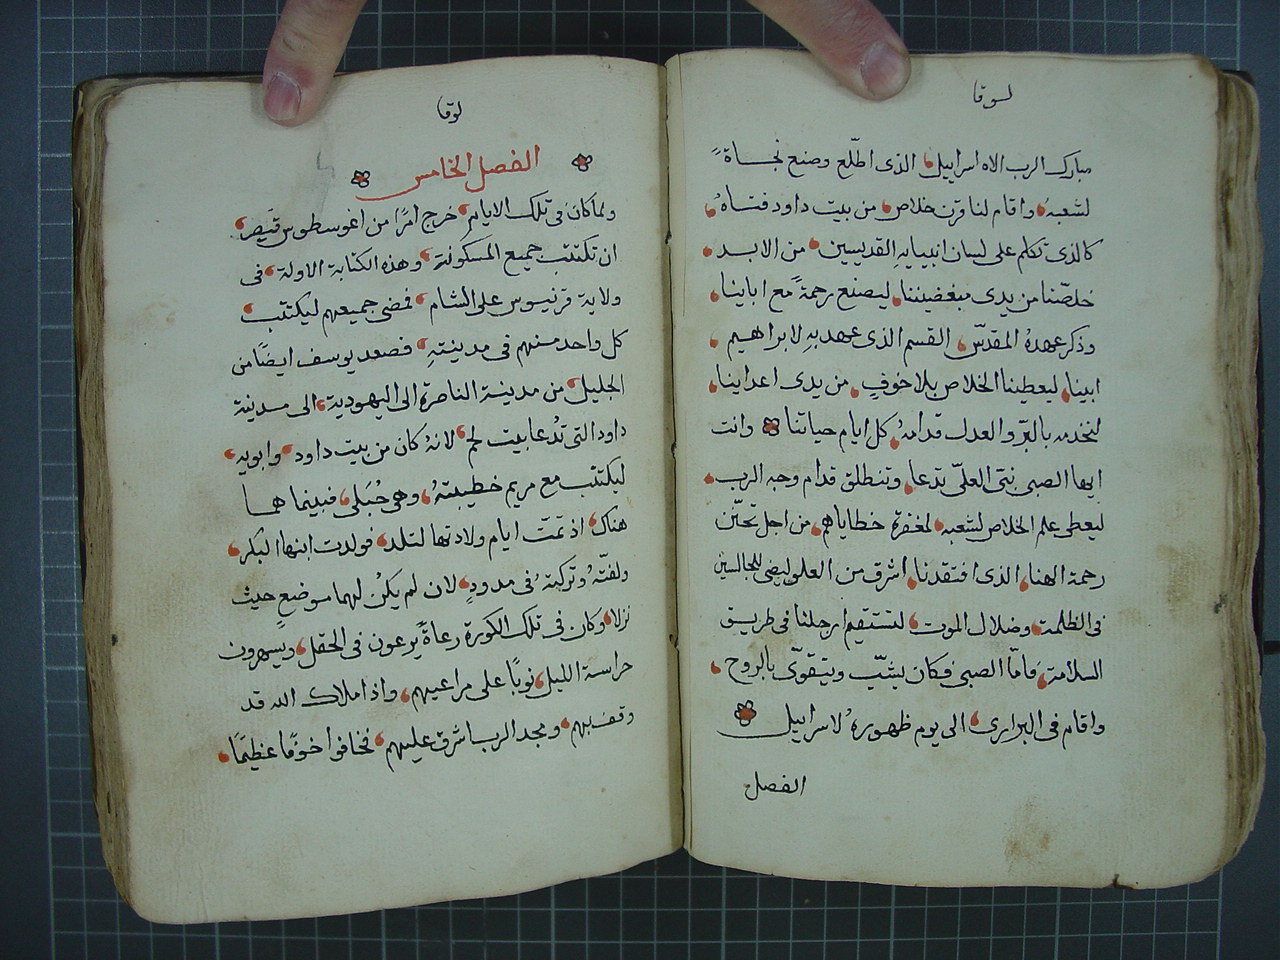 لوقا
مبارك الرب الاه اسراييل الذى اطّلع وصنع نجاةً
لشعبه واقام لنا قرن خلاص من بيت داود فتاهُ
كالذى تكلم على لسان انبيايهِ القديسين من الابد
خلصّنا من يدى مبغضيننا ليصنع رحمةً مع اباينا
وذكر عهدهُ المقدّس القسم الذى عهد بهِ لابراهيم
ابينا ليعطينا الخلاص بلا خوفٍ من يدى اعداينا
لنخدمه بالبرّ والعدل قدامهُ كل ايام حياتنا وانت
ايها الصبى نبّى العلّى تدعا وتنطلق قدام وجه الرب
ليعطى علم الخلاص لشعبه لمغفرة خطاياهم من اجل تحنّن
رحمة الهنا الذى افتقدنا اشرق من العلو ليضى للجالسين
فى الظلمة وضلال الموت لتستقيم ارجلنا فى طريق
السلامة فامّا الصبى فكان يشبّ ويتقوّى بالروح
واقام فى البرارى الى يوم ظهورهُ لاسراييل
الفصل
لوقا
الفصل الخامس
ولما كان فى تلك الايام خرج امرًا من اغوسطوس قيصر
ان تكتتب جميع المسكونة وهذه الكتابة الاولة فى
ولاية قرنيوس على الشام فمضى جميعهم ليكتتب
كل واحد منهم فى مدينتهِ فصعد يوسف ايضًا من
الجليل من مدينة الناصرة الى اليهودية الى مدينة
داود التى تُدعا بيت لحم لانهُ كان من بيت داود وابويه
ليكتتب مع مريم خطيبتهُ وهى حُبلى فبينما هما
هناك اذ تمّت ايام ولادتها لتلد فولدت ابنها البكر
ولفّتهُ وتركتهُ فى مدودٍ لان لم يكنُ لهما موضع حيث
نزلا وكان فى تلك الكورة رعاةً يرعون فى الحقل ويسهرون
حراسة الليل نوبًا على مراعيهم واذا ملاك الله قد
وقف بهم ومجد الرب اشرق عليهم فخافوا خوفًا عظيمًا